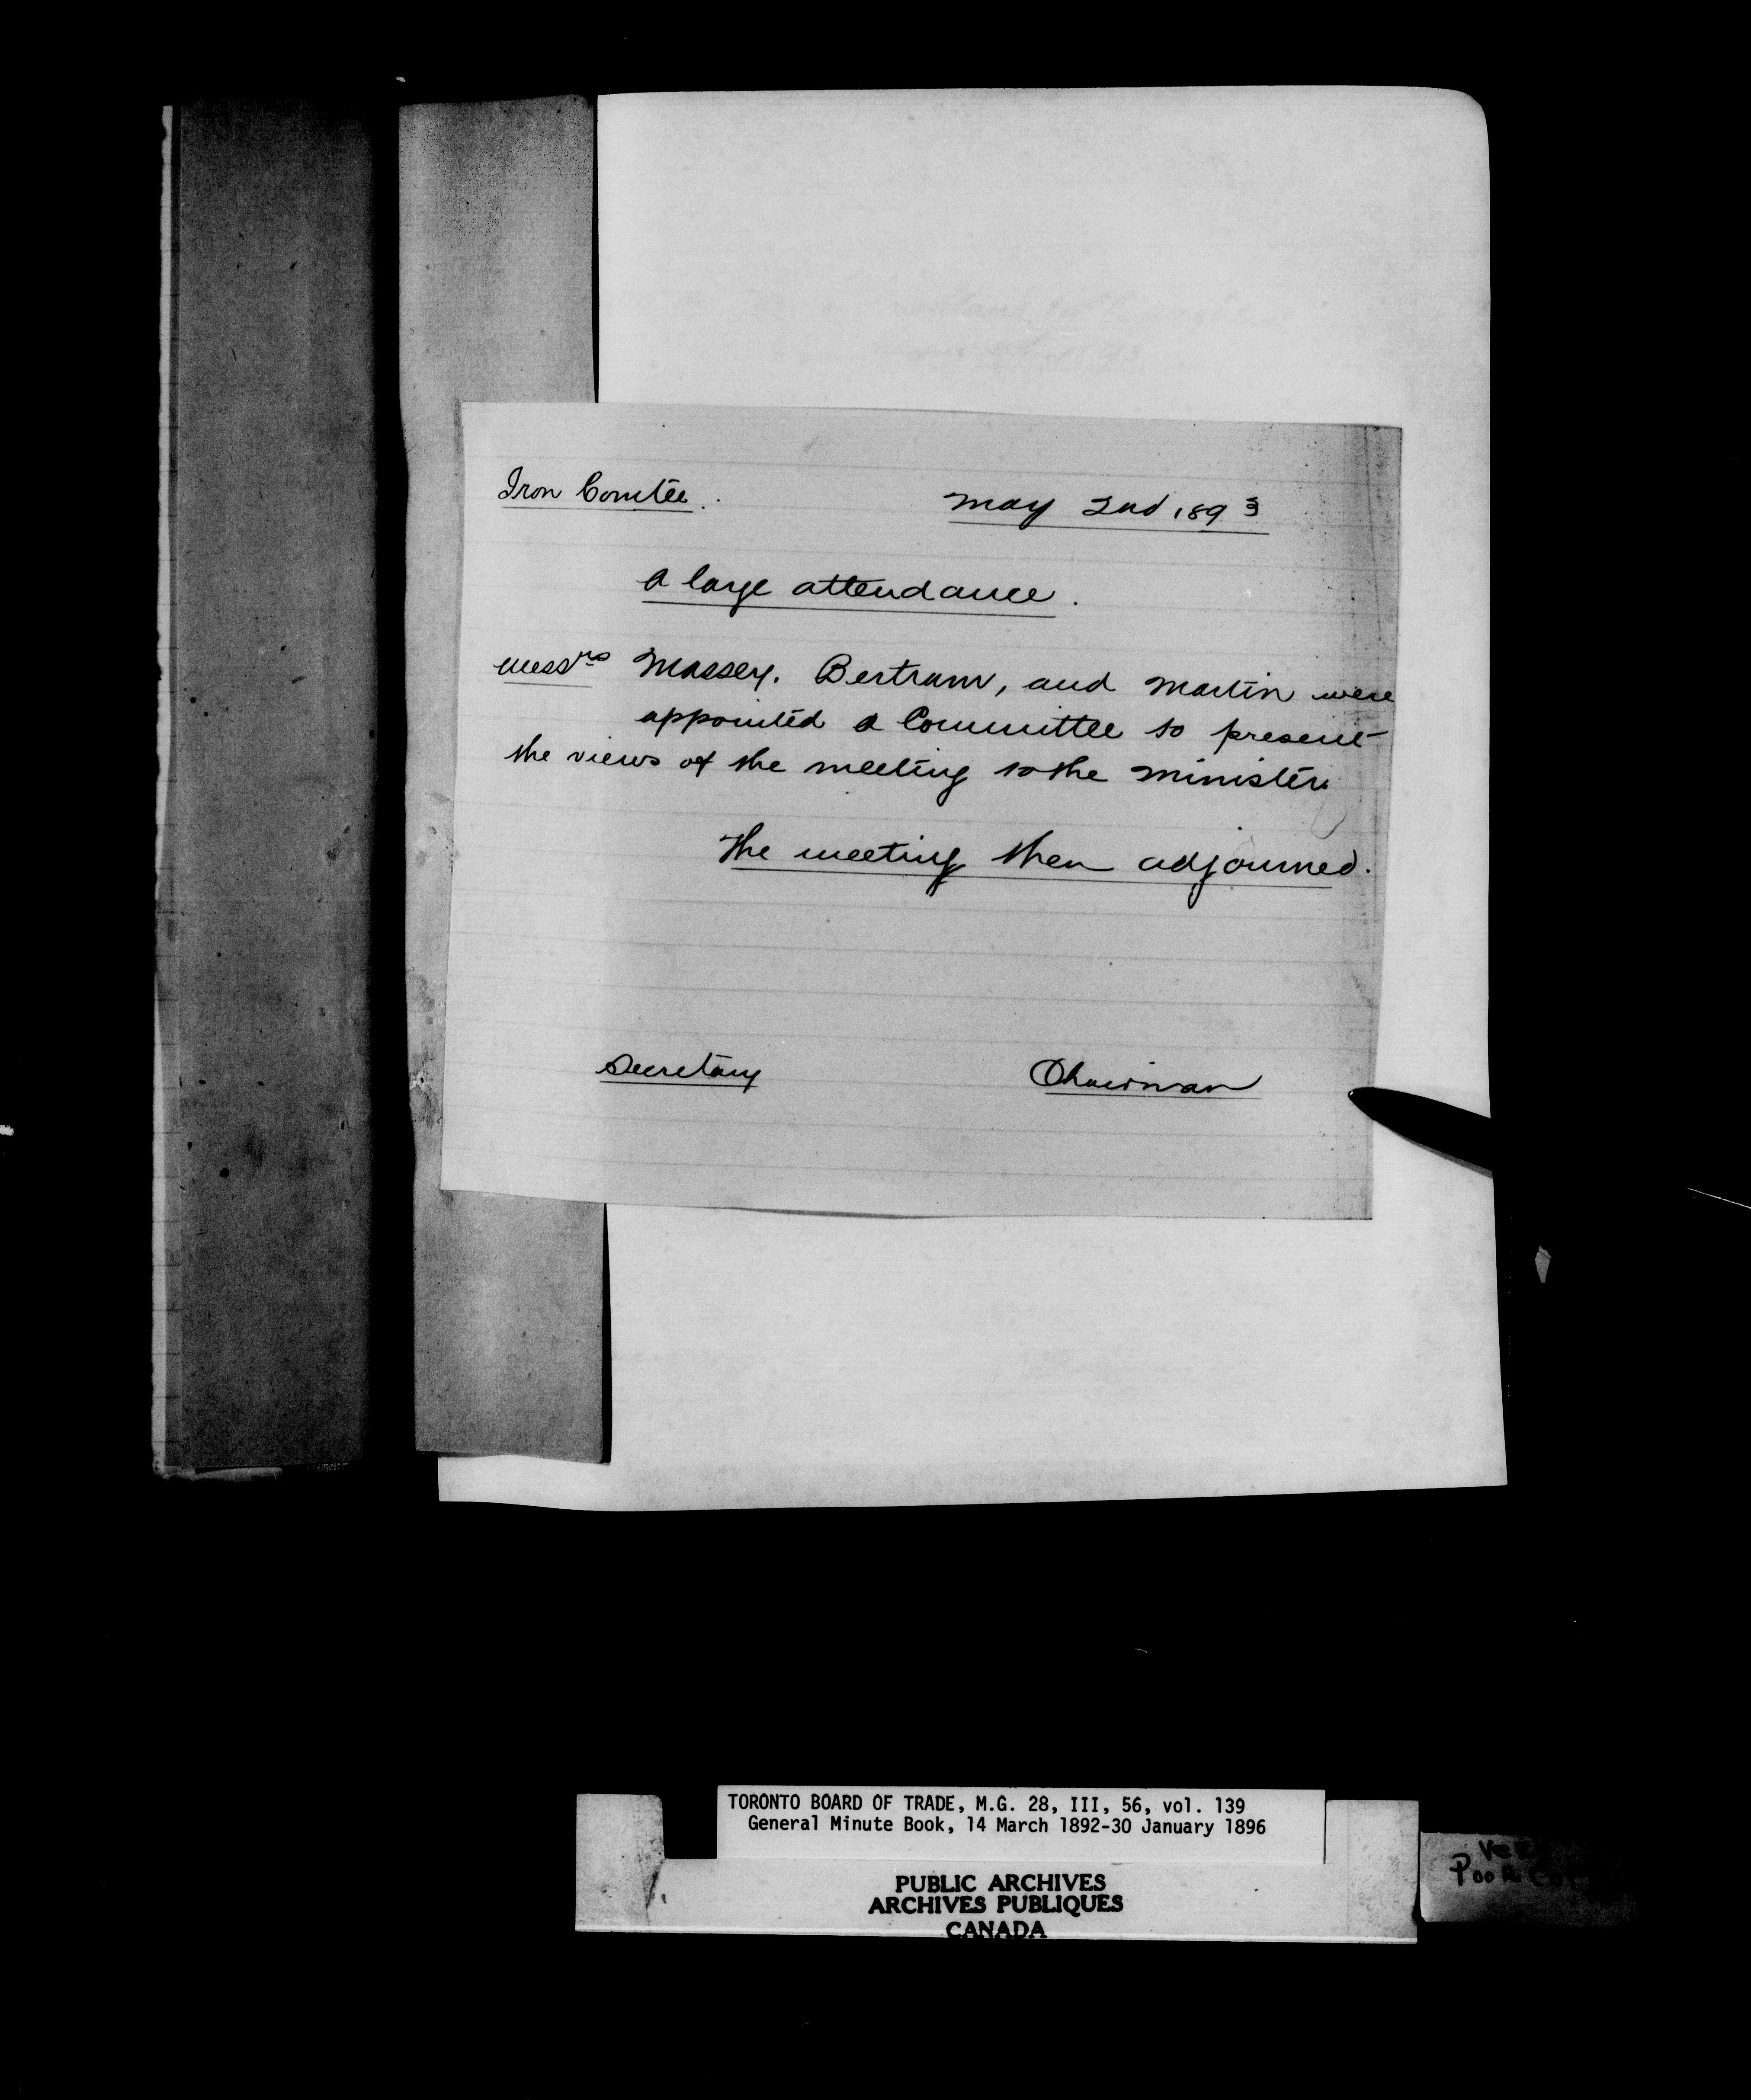 Iron Comtee.
May 2nd 1893
A large attendance.
Messrs Massey. Bertram, and Martin were
appointed a Committee to present
the views of the meeting to the Minister.
The meeting then adjourned.
Secretary
Chairman
TORONTO BOARD OF TRADE, M.G. 28, III, 56, vol. 139
General Minute Book, 14 March 1892-30 January 1896
PUBLIC ARCHIVES
ARCHIVES PUBLIQUES
CANADA
Poor